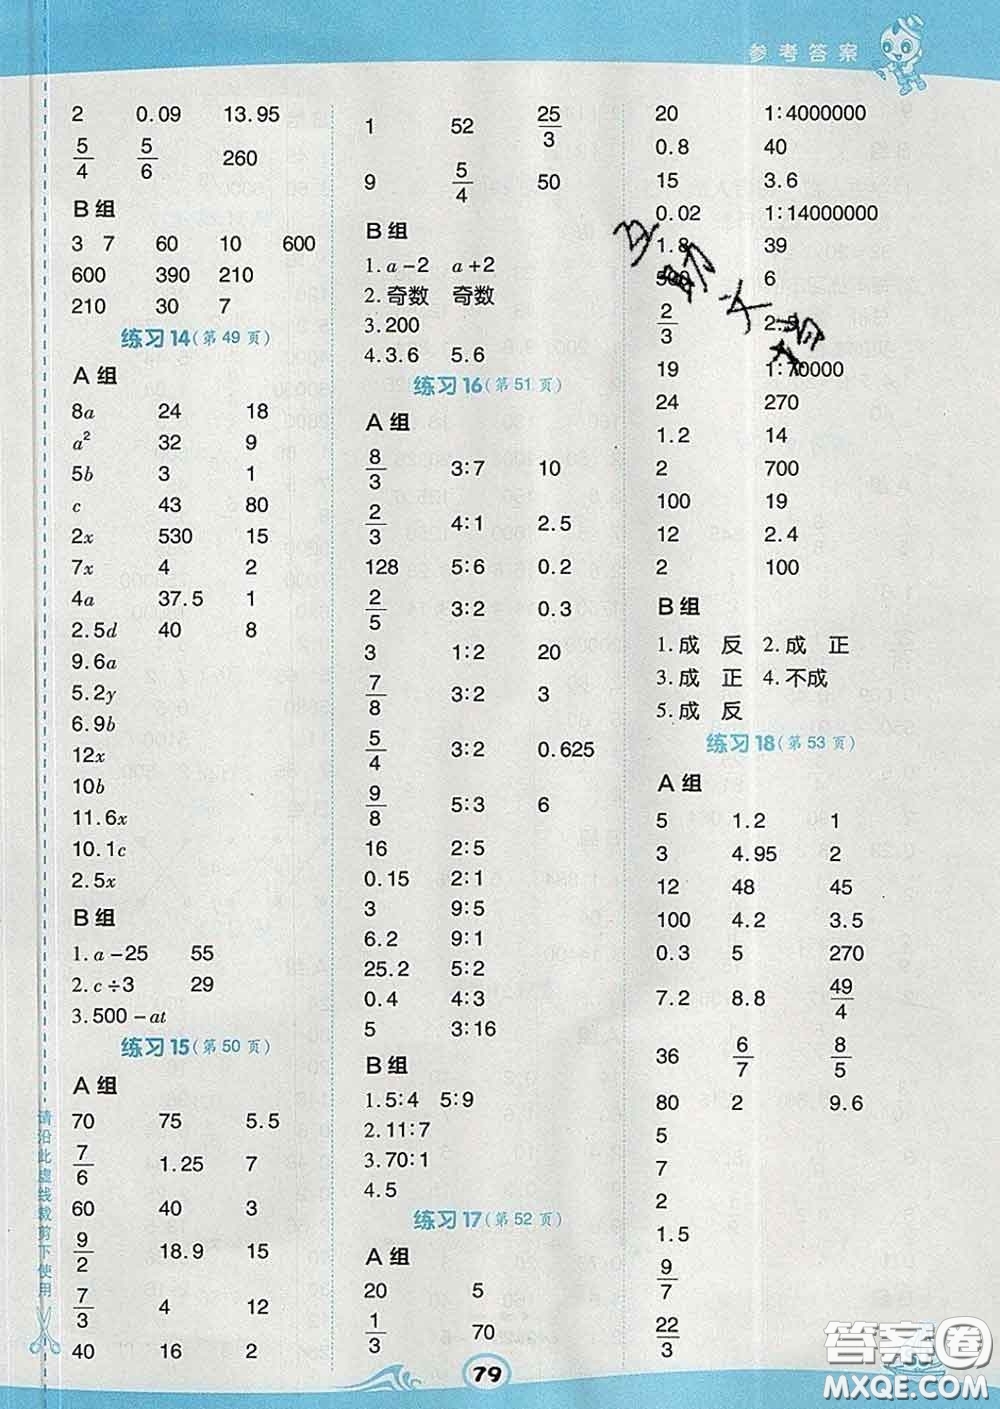 参考答案
2 0.09 13.95
5/4 5/6 260
B组
3 7 60 10 600
600 390 210
210 30 7
练习14(第49页)
A组
8a 24 18
a² 32 9
5b 3 1
c 43 80
2x 530 15
7x 4 2
4a 37.5 1
2.5d 40 8
9.6a
5.2y
6.9b
12x
10b
11.6x
10.1c
2.5x
B组
1.a-25 55
2.c÷3 29
3.500-at
练习15(第50页)
A组
70 75 5.5
7/6 1.25 7
60 40 3
9/2 18.9 15
7/3 4 12
40 16 2
1 52 25/3
9 5/4 50
B组
1.a-2 a+2
2.奇数 奇数
3.200
4.3.6 5.6
练习16(第51页)
A组
8/3 3:7 10
2/3 4:1 2.5
128 5:6 0.2
2/5 3:2 0.3
3 1:2 20
7/8 3:2 3
5/4 3:2 0.625
9/8 5:3 6
16 2:5
0.15 2:1
3 9:5
6.2 9:1
25.2 5:2
0.4 4:3
5 3:16
B组
1.5:4 5:9
2.11:7
3.70:1
4.5
练习17(第52页)
A组
20 5
1/3 70
20 1:4000000
0.8 40
15 3.6
0.02 1:14000000
1.8 39
6
2/3
19 1:70000
24 270
1.2 14
2 700
100 19
12 2.4
2 100
B组
1.成 反 2.成 正
3.成 正 4.不成
5.成 反
练习18(第53页)
A组
5 1.2 1
3 4.95 2
12 48 45
100 4.2 3.5
0.3 5 270
7.2 8.8 49/4
36 6/7 8/5
80 2 9.6
5
7
2
1.5
9/7
22/3
请沿此虚线裁剪下使用
79
答案圈
MXQE.COM